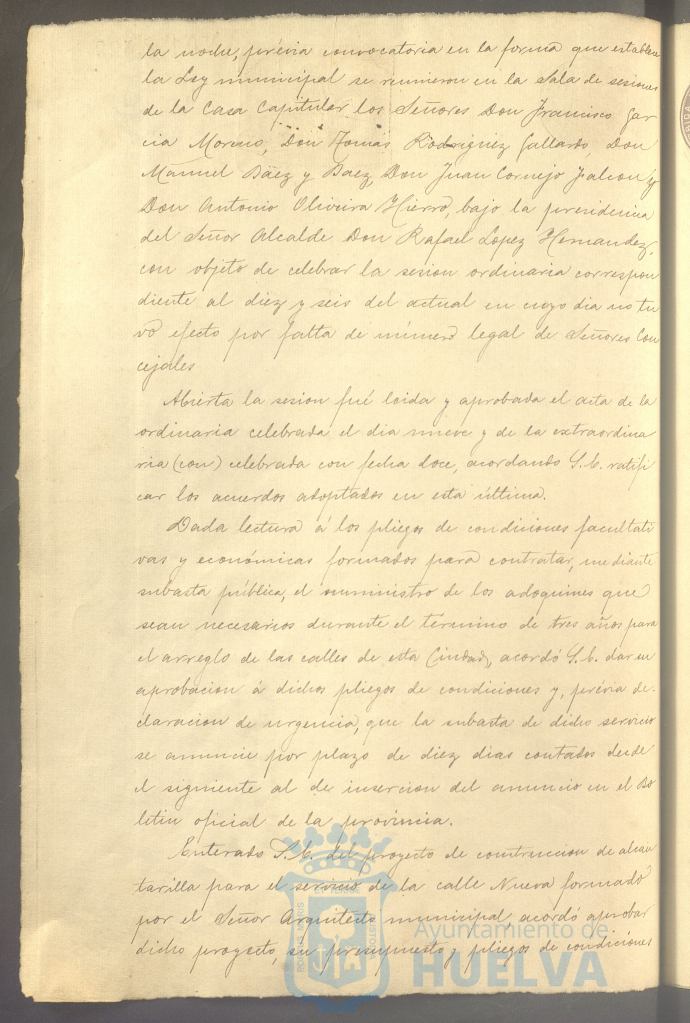 la noche, prévia convocatoria en la forma que establece
la Ley municipal se reunieron en la Sala de sesiones
de la Casa Capitular los Señores Don Francisco Gar
cia Moreno, Don Tomás Rodriguez Gallardo, Don
Manuel Báez y Baez, Don Juan Cornejo Falcon y
Don Antonio Oliveira Hierro, bajo la presidencia
del Señor Alcalde Don Rafael Lopez Hernandez,
con objeto de celebrar la sesion ordinaria correspon
diente al diez y seis del actual en cuyo dia no tu
vo efecto por falta de número legal de Señores Con
cejales
Abierta la sesion fué leida y aprobada el acta de la
ordinaria celebrada el dia nueve y de la extraordina
ria (con) celebrada con fecha doce, acordando S.E. ratifi
car los acuerdos adoptados en esta última.
Dada lectura á los pliegos de condiciones facultati
vas y económicas formados para contratar, mediante
subasta pública, el suministro de los adoquines que
sean necesarios durante el término de tres años para
el arreglo de las calles de esta Ciudad, acordó S.E. dar su
aprobacion á dichos pliegos de condiciones y, prévia de-
claracion de urgencia, que la subasta de dicho servicio
se anuncie por plazo de diez dias contados desde
el siguiente al de insercion del anuncio en el Bo
letin oficial de la provincia.
Enterado S.E. del proyecto de contruccion de alcan
tarilla para el servicio de la calle Nueva formado
por el Señor Arquitecto municipal, acordó aprobar
dicho proyecto, su presupuesto y pliegos de condiciones
Ayuntamiento de
HUELVA